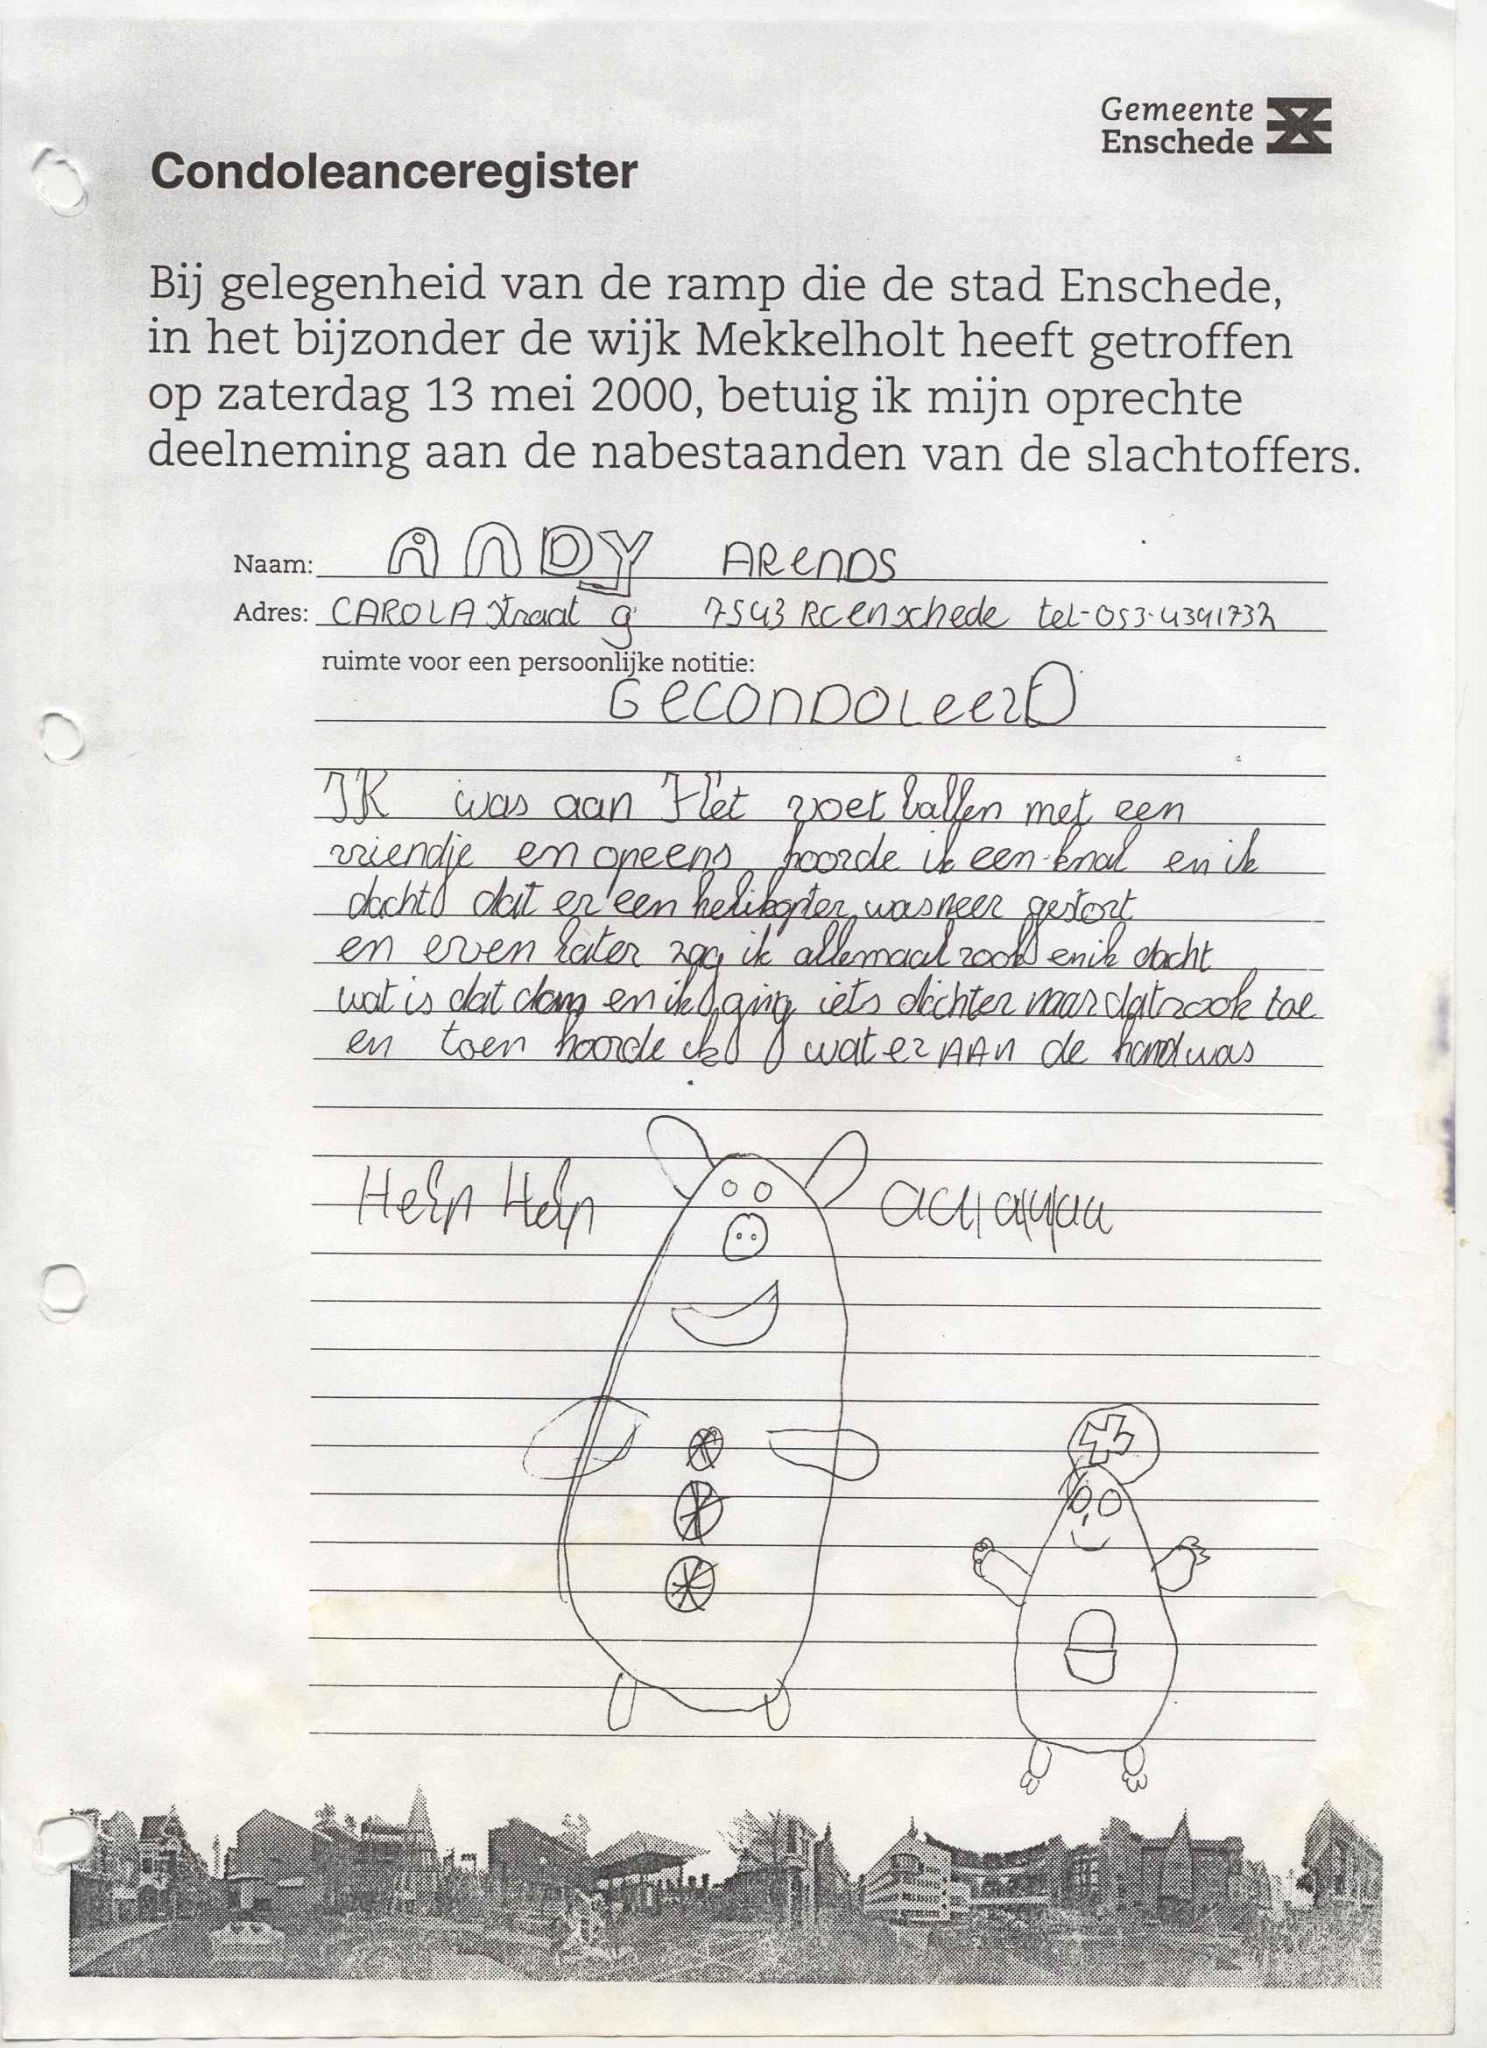 Gemeente
Enschede
Condoleanceregister
Bij gelegenheid van de ramp die de stad Enschede,
in het bijzonder de wijk Mekkelholt heeft getroffen
op zaterdag 13 mei 2000, betuig ik mijn oprechte
deelneming aan de nabestaanden van de slachtoffers.
Naam: ANDY ARENDS
Adres: CAROLA straat 9 7543 RC enschede tel-053-4391732
ruimte voor een persoonlijke notitie:
GeCONDOLeerD
IK was aan Het voet ballen met een
vriendje en opeens hoorde ik een knal en ik
dacht dat er een helikopter was neer gestort
en even later zag ik allemaal rook en ik dacht
wat is dat dan en ik ging iets dichter naar dat rook toe
en toen hoorde ik wat er AAN de hand was
Help Help